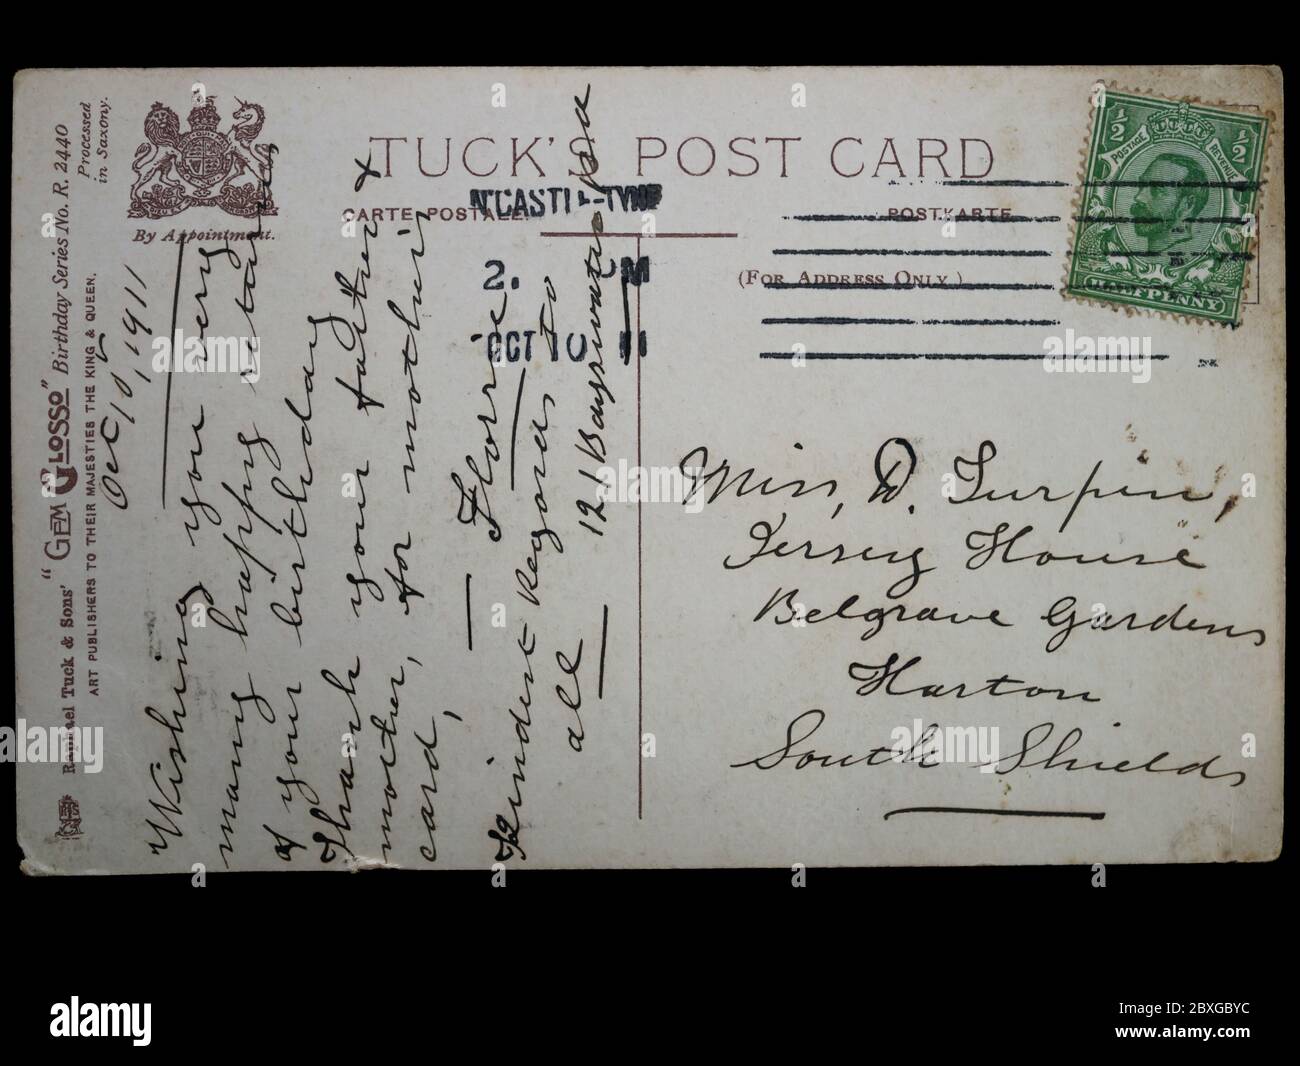 Raphael Tuck & Sons' "GEM GLOSSO" Birthday Series No. R. 2440
ART PUBLISHERS TO THEIR MAJESTIES THE KING & QUEEN.
Processed
in Saxony.
By Appointment.
TUCK'S POST CARD
CARTE POSTALE.
POSTKARTE
(FOR ADDRESS ONLY.)
N'CASTLE-TYNE
OCT 10 11
½ ½
POSTAGE REVENUE
HALFPENNY
Oct 10, 1911
"Wishing you very
many happy returns
of your birthday
Thank your father &
mother, for mother's
card,
Florrie
Kindest Regards to
all
121 Bayswater Rd
Miss, D. Turpin,
Jersey House
Belgrave Gardens
Harton
South Shields
alamy
Image ID: 2BXGBYC
www.alamy.com